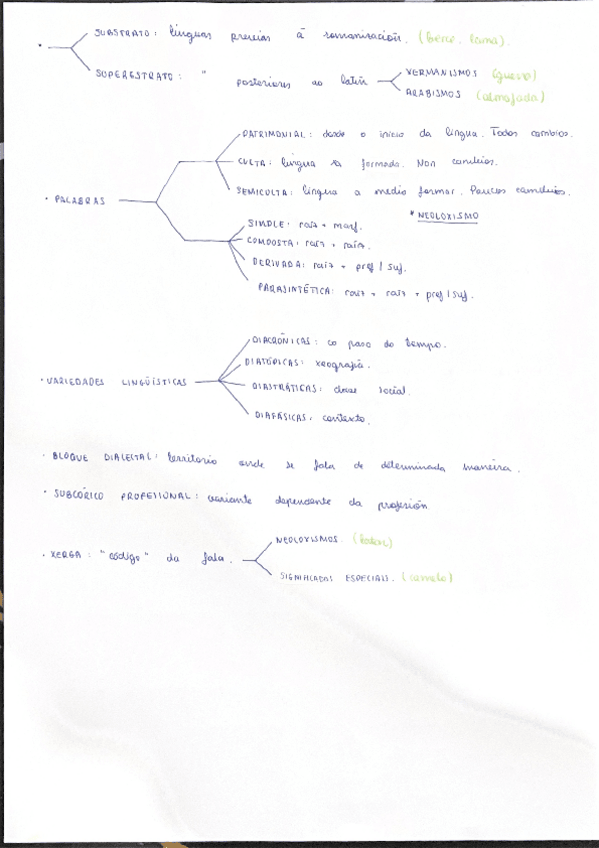 · SUBSTRATO: linguas previas á romanización. (berce, lama).
SUPERESTRATO: " posteriores ao latín
XERMANISMOS (guerra)
ARABISMOS (almofada)
PATRIMONIAL: desde o inicio da lingua. Todos cambios.
CULTA: lingua xa formada. Non cambios.
SEMICULTA: lingua a medio formar. Poucos cambios.
* NEOLOXISMO
· PALABRAS
SIMPLE: raíz + morf.
COMPOSTA: raíz + raíz.
DERIVADA: raíz + pref / suf.
PARASINTÉTICA: raíz + raíz + pref / suf.
DIACRÓNICAS: co paso do tempo.
DIATÓPICAS: xeografía.
· VARIEDADES LINGÜÍSTICAS
DIASTRÁTICAS: clase social.
DIAFÁSICAS: contexto.
· BLOQUE DIALECTAL: territorio onde se fala de determinada maneira.
· SUBCÓDIGO PROFESIONAL: variante dependente da profesión
NEOLOXISMOS.
· XERGA: "código" da fala.
SIGNIFICADOS ESPECIAIS. (camelo)